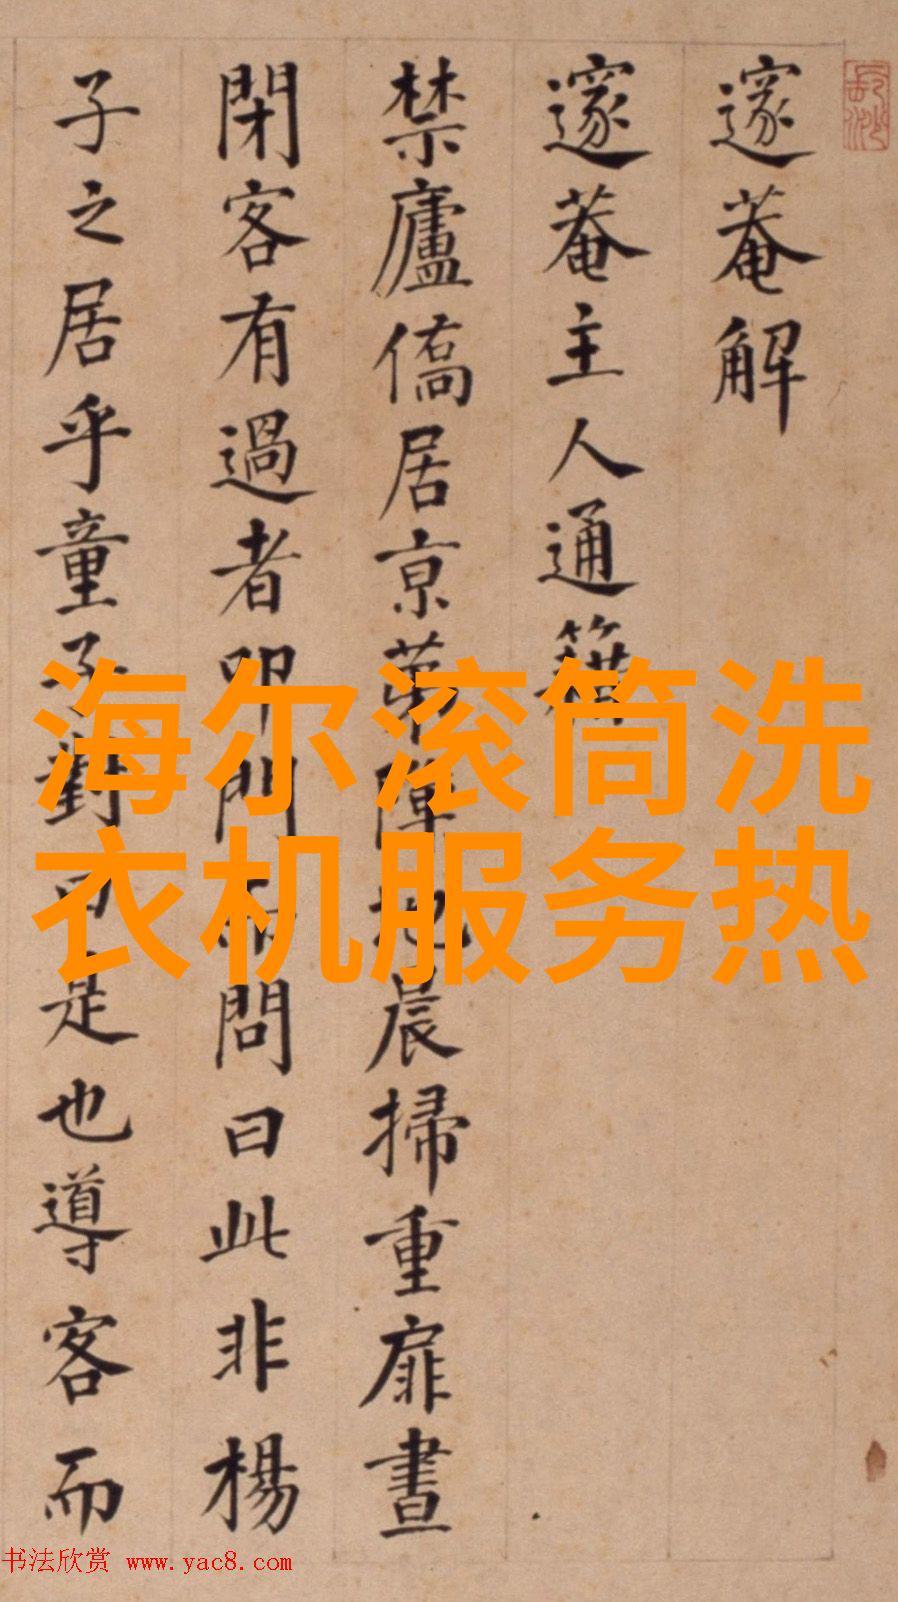 邃菴解
邃菴主人通籍
禁廬僑居京第陣地晨掃重扉晝
閉客有過者叩門而問曰此非楊
子之居乎童子對曰是也導客而
海尔滚筒洗
衣机服务热
书法欣赏 www.yac8.com